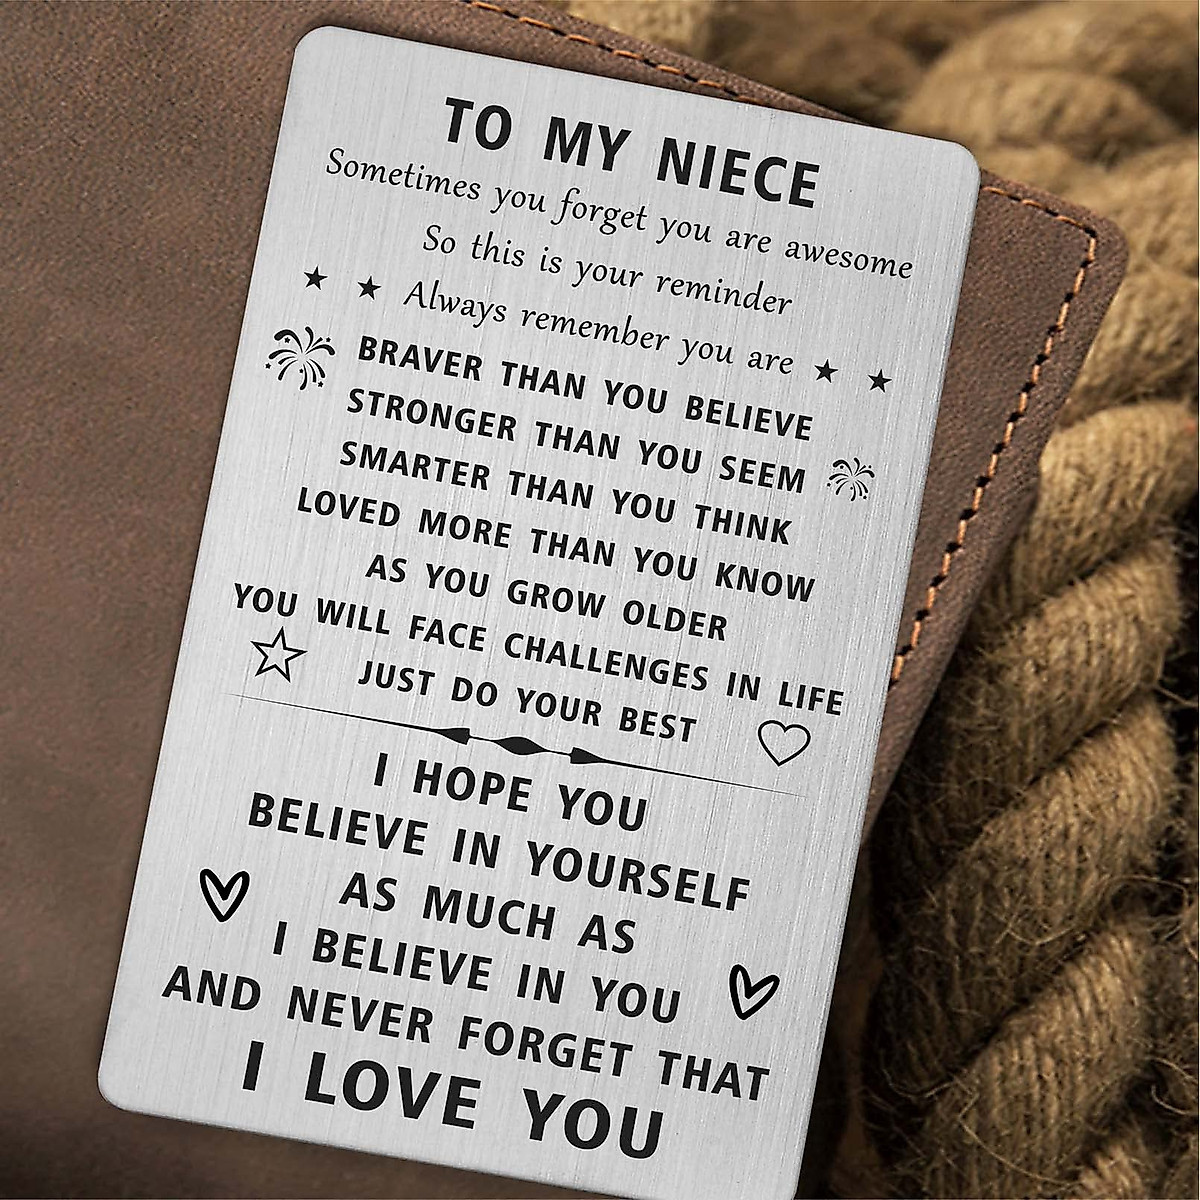 TO MY NIECE
Sometimes you forget you are awesome
So this is your reminder
Always remember you are
BRAVER THAN YOU BELIEVE
STRONGER THAN YOU SEEM
SMARTER THAN YOU THINK
LOVED MORE THAN YOU KNOW
AS YOU GROW OLDER
YOU WILL FACE CHALLENGES IN LIFE
JUST DO YOUR BEST
I HOPE YOU
BELIEVE IN YOURSELF
AS MUCH AS
I BELIEVE IN YOU
AND NEVER FORGET THAT
I LOVE YOU